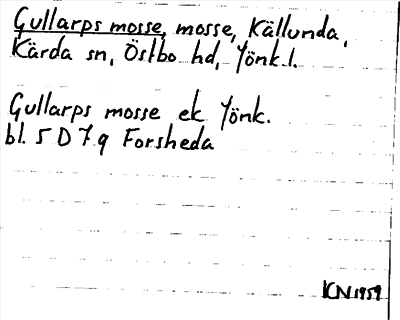 Gullarps mosse, mosse, Källunda,
Kärda sn, Östbo hd, Jönk.l.
Gullarps mosse ek Jönk.
bl. 5 D 7 g Forsheda
KN 1959